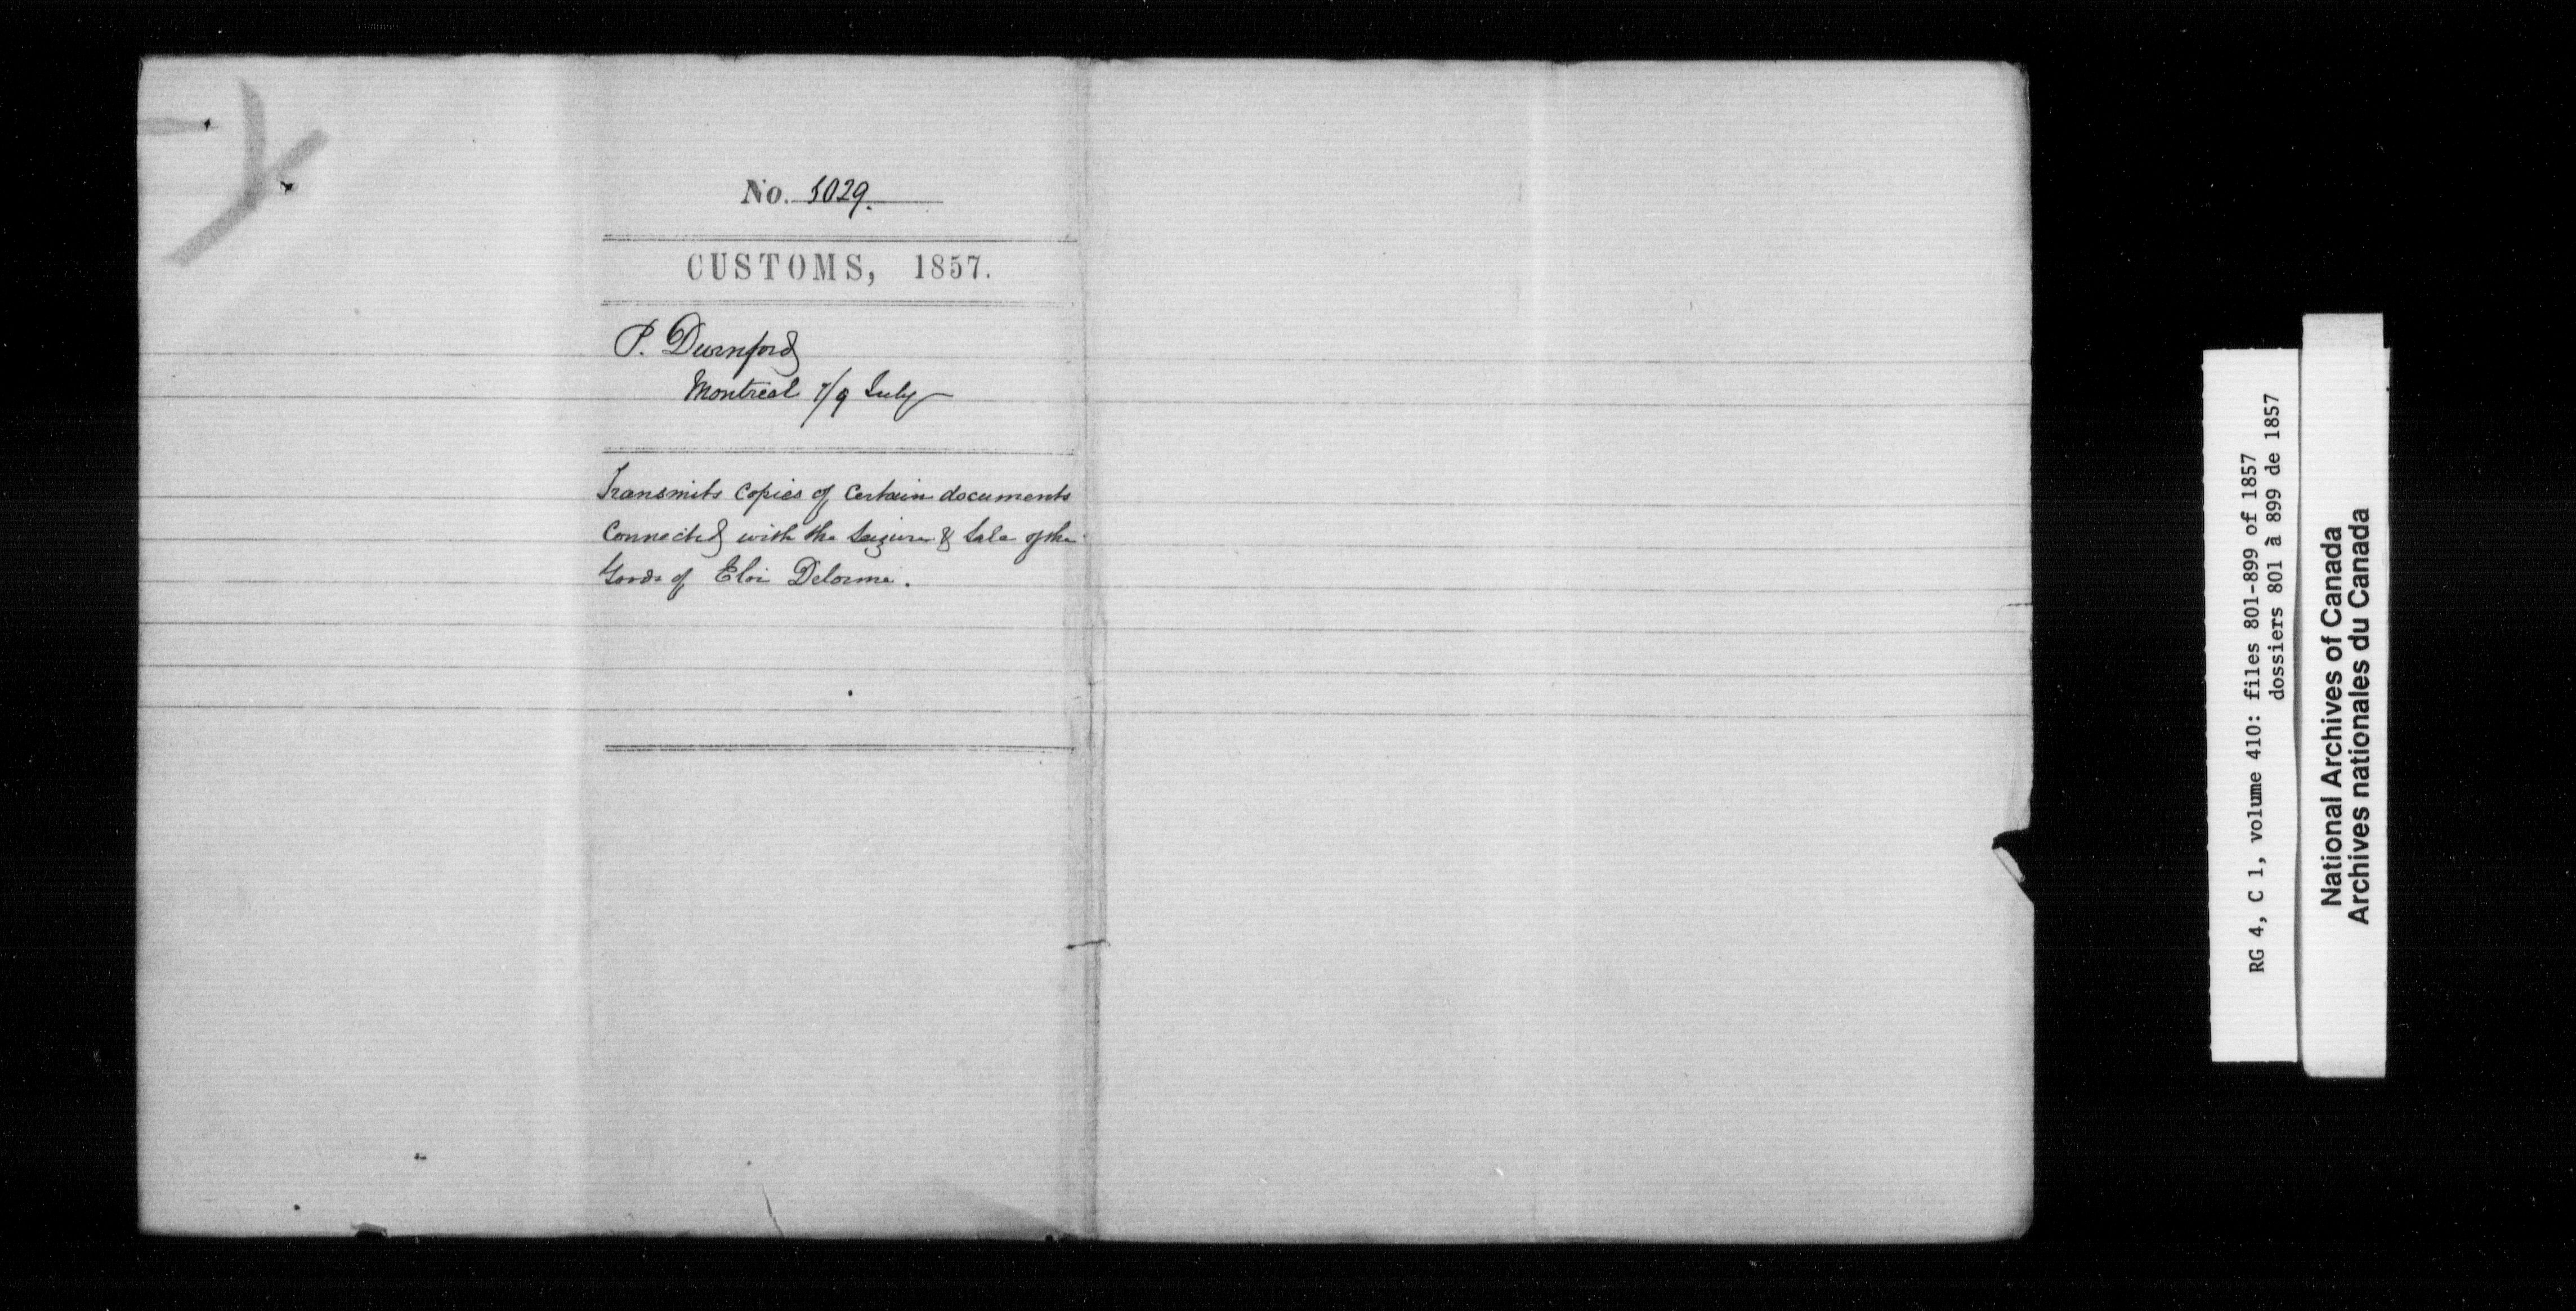 No. 5029.
CUSTOMS, 1857.
P. Durnford
Montreal 7/9 July
Transmits Copies of Certain documents
Connected with the Seizure & Sale of the
Goods of Eloi Delorme.
RG 4, C 1, volume 410: files 801-899 of 1857
dossiers 801 à 899 de 1857
National Archives of Canada
Archives nationales du Canada